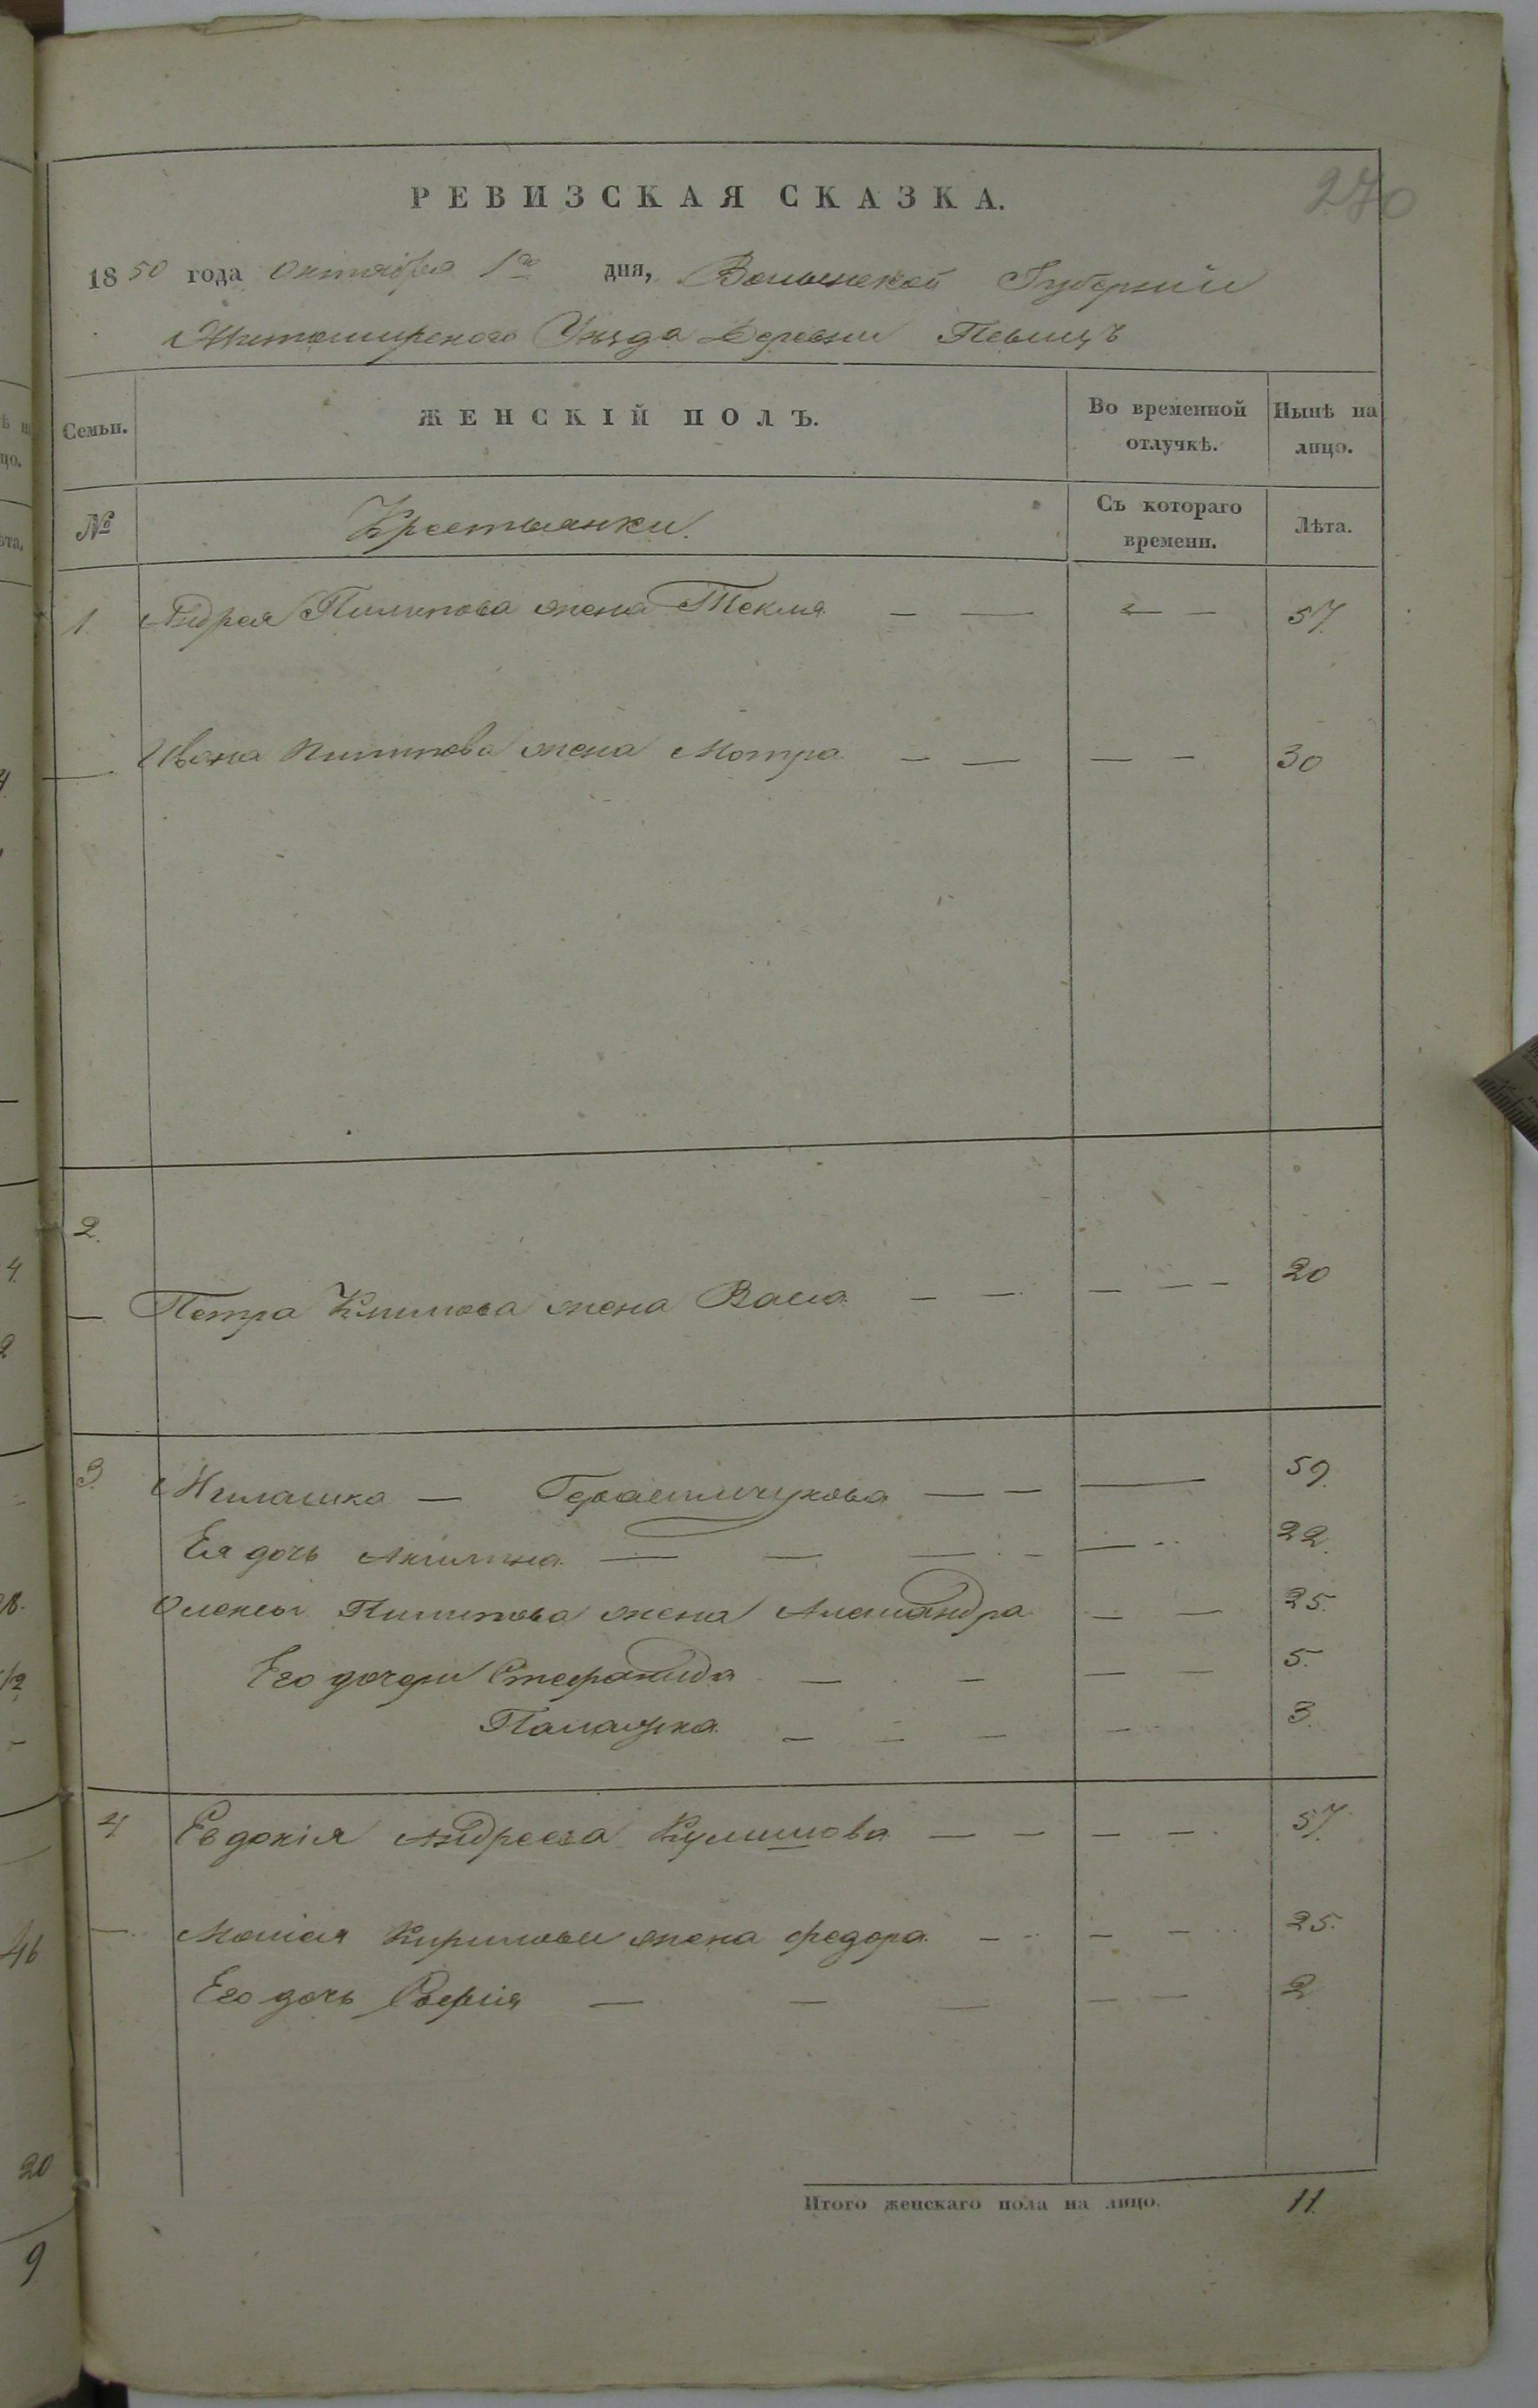 270
РЕВИЗСКАЯ СКАЗКА.
1850 года Октября 1го дня, Волынской Губерніи
Житомирского Уѣзда Деревни Певицъ
Семьи. ЖЕНСКІЙ ПОЛЪ. Во временной отлучкѣ. Нынѣ на лицо.
№ Крестьянки. Съ котораго времени. Лѣта.
1. Андрея Пилипова жена Текля — — — — 57.
— Ивана Пилипова жена Мотра — — — — 30
2.
— Петра Климова жена Васса — — — — — 20
3. — — — — 59.
Ея дочь Акилина — — — — — 22.
Олексы Пилипова жена Александра — — 25.
Его дочери Стефанида — — — — 5.
Палашка — — — — 3.
4. Евдокія Андреева — — — — 57.
— Кирилова жена Федора — — — 25.
Его дочь Софія — — — — — 2
Итого женскаго пола на лицо. 11.